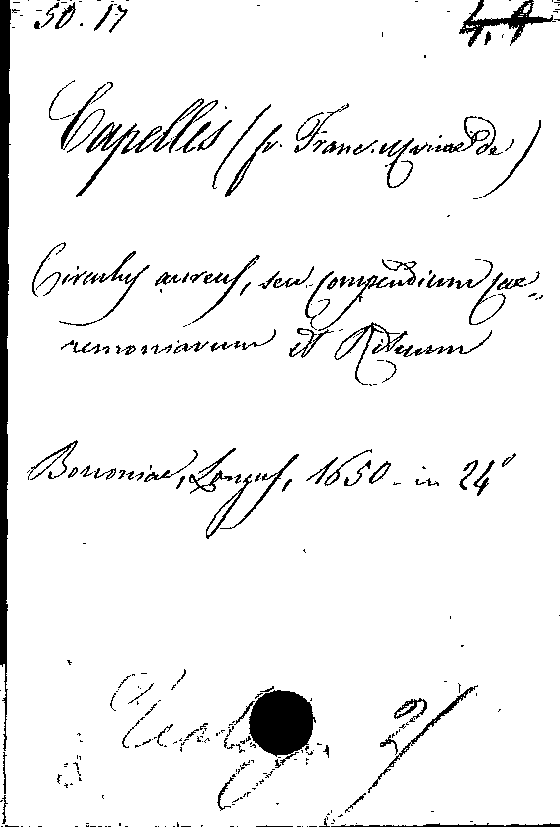 50.17 4.9
Capellis (fr. Franc. Mariae de)
Circulus aureus, seu compendium cae=
remoniarum et Rituum
Bononiae, Longus, 1650 - in 24°
2